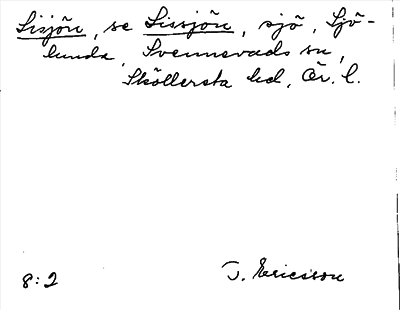 Sisjön, se Sissjön, sjö, Sjö-
lunda, Svennevads sn,
Sköllersta hd, Ör. l.
8:2
J. Ericsson